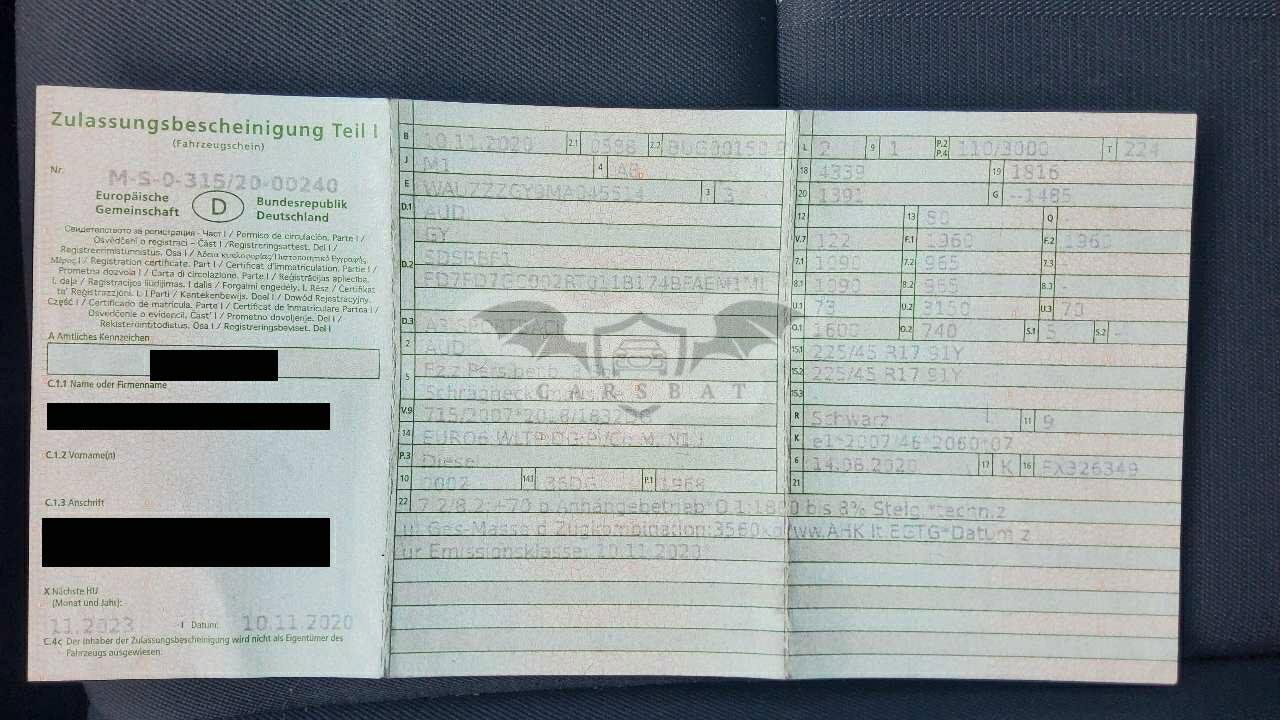 Zulassungsbescheinigung Teil I
(Fahrzeugschein)
Nr. M-S-0-315/20-00240
Europäische Gemeinschaft
D
Bundesrepublik Deutschland
Свидетелство за регистрация - Част I / Permiso de circulación. Parte I /
Osvědčení o registraci - Část I / Registreringsattest. Del I /
Registreerimistunnistus. Osa I / Άδεια κυκλοφορίας/Πιστοποιητικό Εγγραφής
Μέρος I / Registration certificate. Part I / Certificat d'immatriculation. Partie I /
Prometna dozvola I / Carta di circolazione. Parte I / Reģistrācijas apliecība.
I. daļa / Registracijos liudijimas. I dalis / Forgalmi engedély. I. Rész / Ċertifikat
ta' Reġistrazzjoni. L-I Parti / Kentekenbewijs. Deel I / Dowód Rejestracyjny.
Część I / Certificado de matrícula. Parte I / Certificat de înmatriculare Partea I /
Osvedčenie o evidencii. Časť I / Prometno dovoljenje. Del I /
Rekisteröintitodistus. Osa I / Registreringsbeviset. Del I
A Amtliches Kennzeichen
C.1.1 Name oder Firmenname
C.1.2 Vorname(n)
C.1.3 Anschrift
X Nächste HU
(Monat und Jahr):
11.2023 I Datum: 10.11.2020
C.4c Der Inhaber der Zulassungsbescheinigung wird nicht als Eigentümer des
Fahrzeugs ausgewiesen.
B 10.11.2020 2.1 0598 2.2
J M1 4 AB
E 3 3
D.1 AUDI
GY
D.2
D.3 A3 SPORTBACK
2 AUDI
5 Fz.z.Pers.bef.b.
Schräghecklimousine
V.9 715/2007*2018/1832
14 EURO6 WLTP
P.3 Diesel
10 0002 14.1 36DG P.1 1968
L 2 9 1 P.2 P.4 110/3000 T 224
18 4339 19 1816
20 1391 G --1485
12 - 13 80 Q -
V.7 122 F.1 1960 F.2 1960
7.1 1090 7.2 965 7.3 -
8.1 1090 8.2 965 8.3 -
U.1 73 U.2 3150 U.3 70
O.1 1600 O.2 740 S.1 5 S.2 -
15.1 225/45 R17 91Y
15.2 225/45 R17 91Y
15.3 -
R Schwarz 11 9
K e1*2007/46*2060*07
6 14.08.2020 17 K 16 FX326349
21
22 7.2/8.2:+70 b.Anhängebetrieb*O.1:1800 bis 8% Steig.*techn.z
ul.Ges-Masse d.Zugkombination:3560kg*ww.AHK lt.EGTG*Datum z
ur Emissionsklasse: 10.11.2020*
CARSBAT